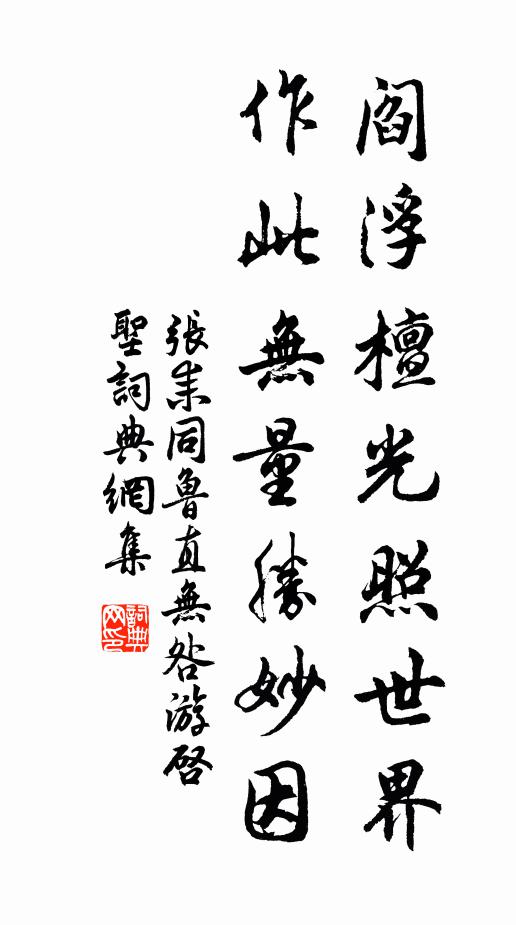 閻浮檀光照世界
作此無量勝妙因
張耒同魯直無咎游啓
聖詞典網集
詞典
网印